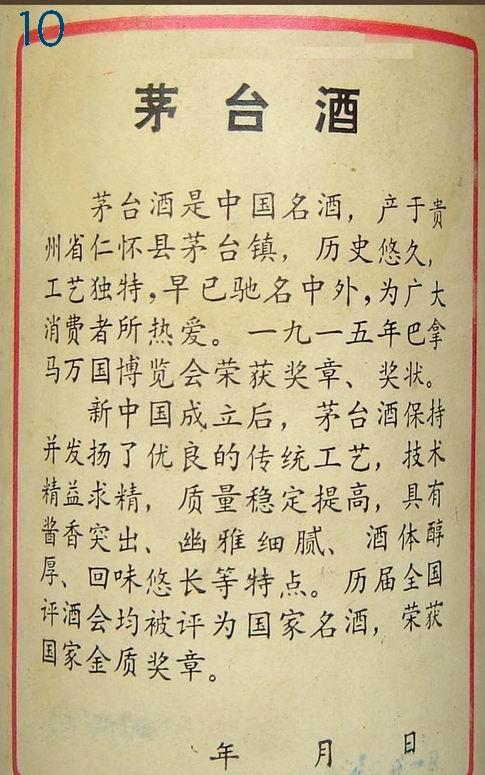 10
茅台酒
茅台酒是中国名酒，产于贵
州省仁怀县茅台镇，历史悠久，
工艺独特，早已驰名中外，为广大
消费者所热爱。一九一五年巴拿
马万国博览会荣获奖章、奖状。
新中国成立后，茅台酒保持
并发扬了优良的传统工艺，技术
精益求精，质量稳定提高，具有
酱香突出、幽雅细腻、酒体醇
厚、回味悠长等特点。历届全国
评酒会均被评为国家名酒，荣获
国家金质奖章。
年 月 日